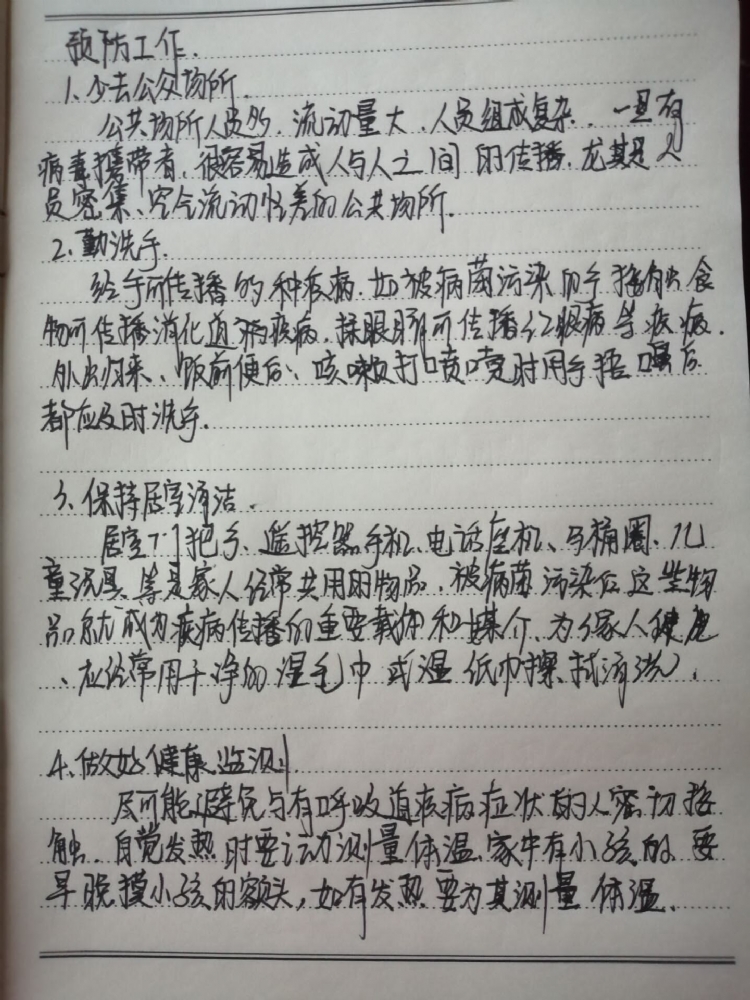 预防工作.
1、少去公众场所.
公共场所人员多.流动量大.人员组成复杂.一旦有
病毒携带者,很容易造成人与人之间的传播.尤其是人
员密集、空气流动性差的公共场所.
2、勤洗手.
经手所传播的种疾病.如被病菌污染的手接触食
物可传播消化道疾病.揉眼睛可传播红眼病等疾病.
外出归来、饭前便后、咳嗽打喷嚏时用手捂嘴后
都应及时洗手.
3、保持居室清洁.
居室门把手、遥控器手机、电话座机、马桶圈、儿
童玩具等是家人经常共用的物品,被病菌污染后这些物
品就成为疾病传播的重要载体和媒介、为了家人健康
、应经常用干净的湿毛巾或湿纸巾擦拭清洗.
4、做好健康监测.
尽可能避免与有呼吸道疾病症状的人密切接
触.自觉发热时要主动测量体温.家中有小孩的.要
早晚摸小孩的额头,如有发热要为其测量体温.